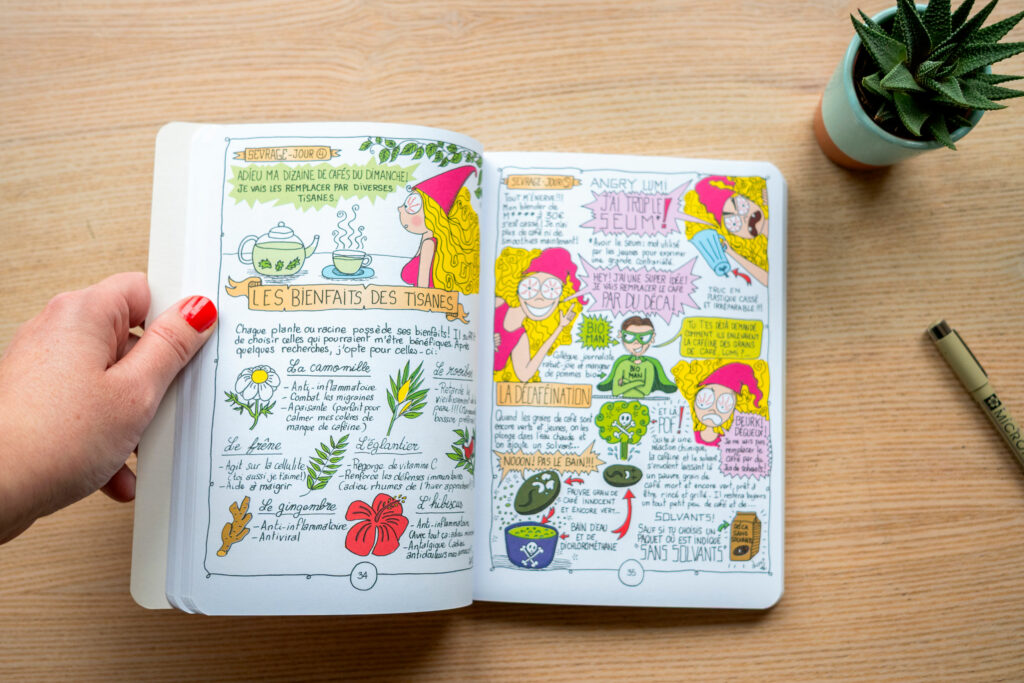 SEVRAGE-JOUR 4
ADIEU MA DIZAINE DE CAFÉS DU DIMANCHE!
JE VAIS LES REMPLACER PAR DIVERSES
TISANES.
LES BIENFAITS DES TISANES
Chaque plante ou racine possède ses bienfaits! Il
de choisir celles qui pourraient m'être bénéfiques. Après
quelques recherches, j'opte pour celles-ci:
La camomille
- Anti-inflammatoire
- Combat les migraines
- Apaisante (parfait pour
calmer mes colères de
manque de caféine)
Le
- Retarde le
vieillissement
peau!!!
Le frêne
- Agit sur la cellulite
(toi aussi je t'aime!)
- Aide à maigrir
L'églantier
- Regorge de vitamine C
- Renforce les défenses immunitaires
(adieu rhumes de l'hiver
Le gingembre
- Anti-inflammatoire
- Antiviral
L'hibiscus
- Anti-inflammatoire
(Avec tout ça: adieu
- Antalgique (adieu
34
SEVRAGE-JOUR 5
TOUT M'ÉNERVE!!!
Mon blender de
M**** à 30€
s'est cassé! Je n'ai
plus de café ni de
smoothies maintenant!
ANGRY LUMI
J'AI TROP LE
SEUM!
* Avoir le seum: mot utilisé
par les jeunes pour exprimer
une grande contrariété.
TRUC EN
PLASTIQUE CASSÉ
ET IRRÉPARABLE!!!
HEY! J'AI UNE SUPER IDÉE!
JE VAIS REMPLACER LE CAFÉ
PAR DU DÉCA!
BIO
MAN
Collègue journaliste
rabat-joie et mangeur
de pommes bio
BIO
MAN
TU T'ES DÉJÀ DEMANDÉ
COMMENT ILS ENLEVAIENT
LA CAFÉINE DES GRAINS
DE CAFÉ LUMI?
LA DÉCAFÉINATION
Quand les grains de café sont
encore verts et jeunes, on les
plonge dans l'eau chaude et
on ajoute un solvant...
... ET LÀ
POF!
Suite à une
réaction chimique,
la caféine et le solvant
s'évadent laissant là
un pauvre grain de
café mort et encore vert, prêt à
être rincé et grillé. Il restera toujours
un tout petit peu de café et de...
SOLVANTS!
BEURK!
DÉGUEU!
Je ne vais pas
remplacer le
café par du
jus de solvants
NOOON! PAS LE BAIN!!!
PAUVRE GRAIN DE
CAFÉ INNOCENT
ET ENCORE VERT...
BAIN D'EAU
ET DE
DICHLOROMÉTHANE
SAUF SI TU CHOISIS UN
PAQUET OÙ EST INDIQUÉ
"SANS SOLVANTS"
DÉCA
SANS
SOLVANT
35
MICRO